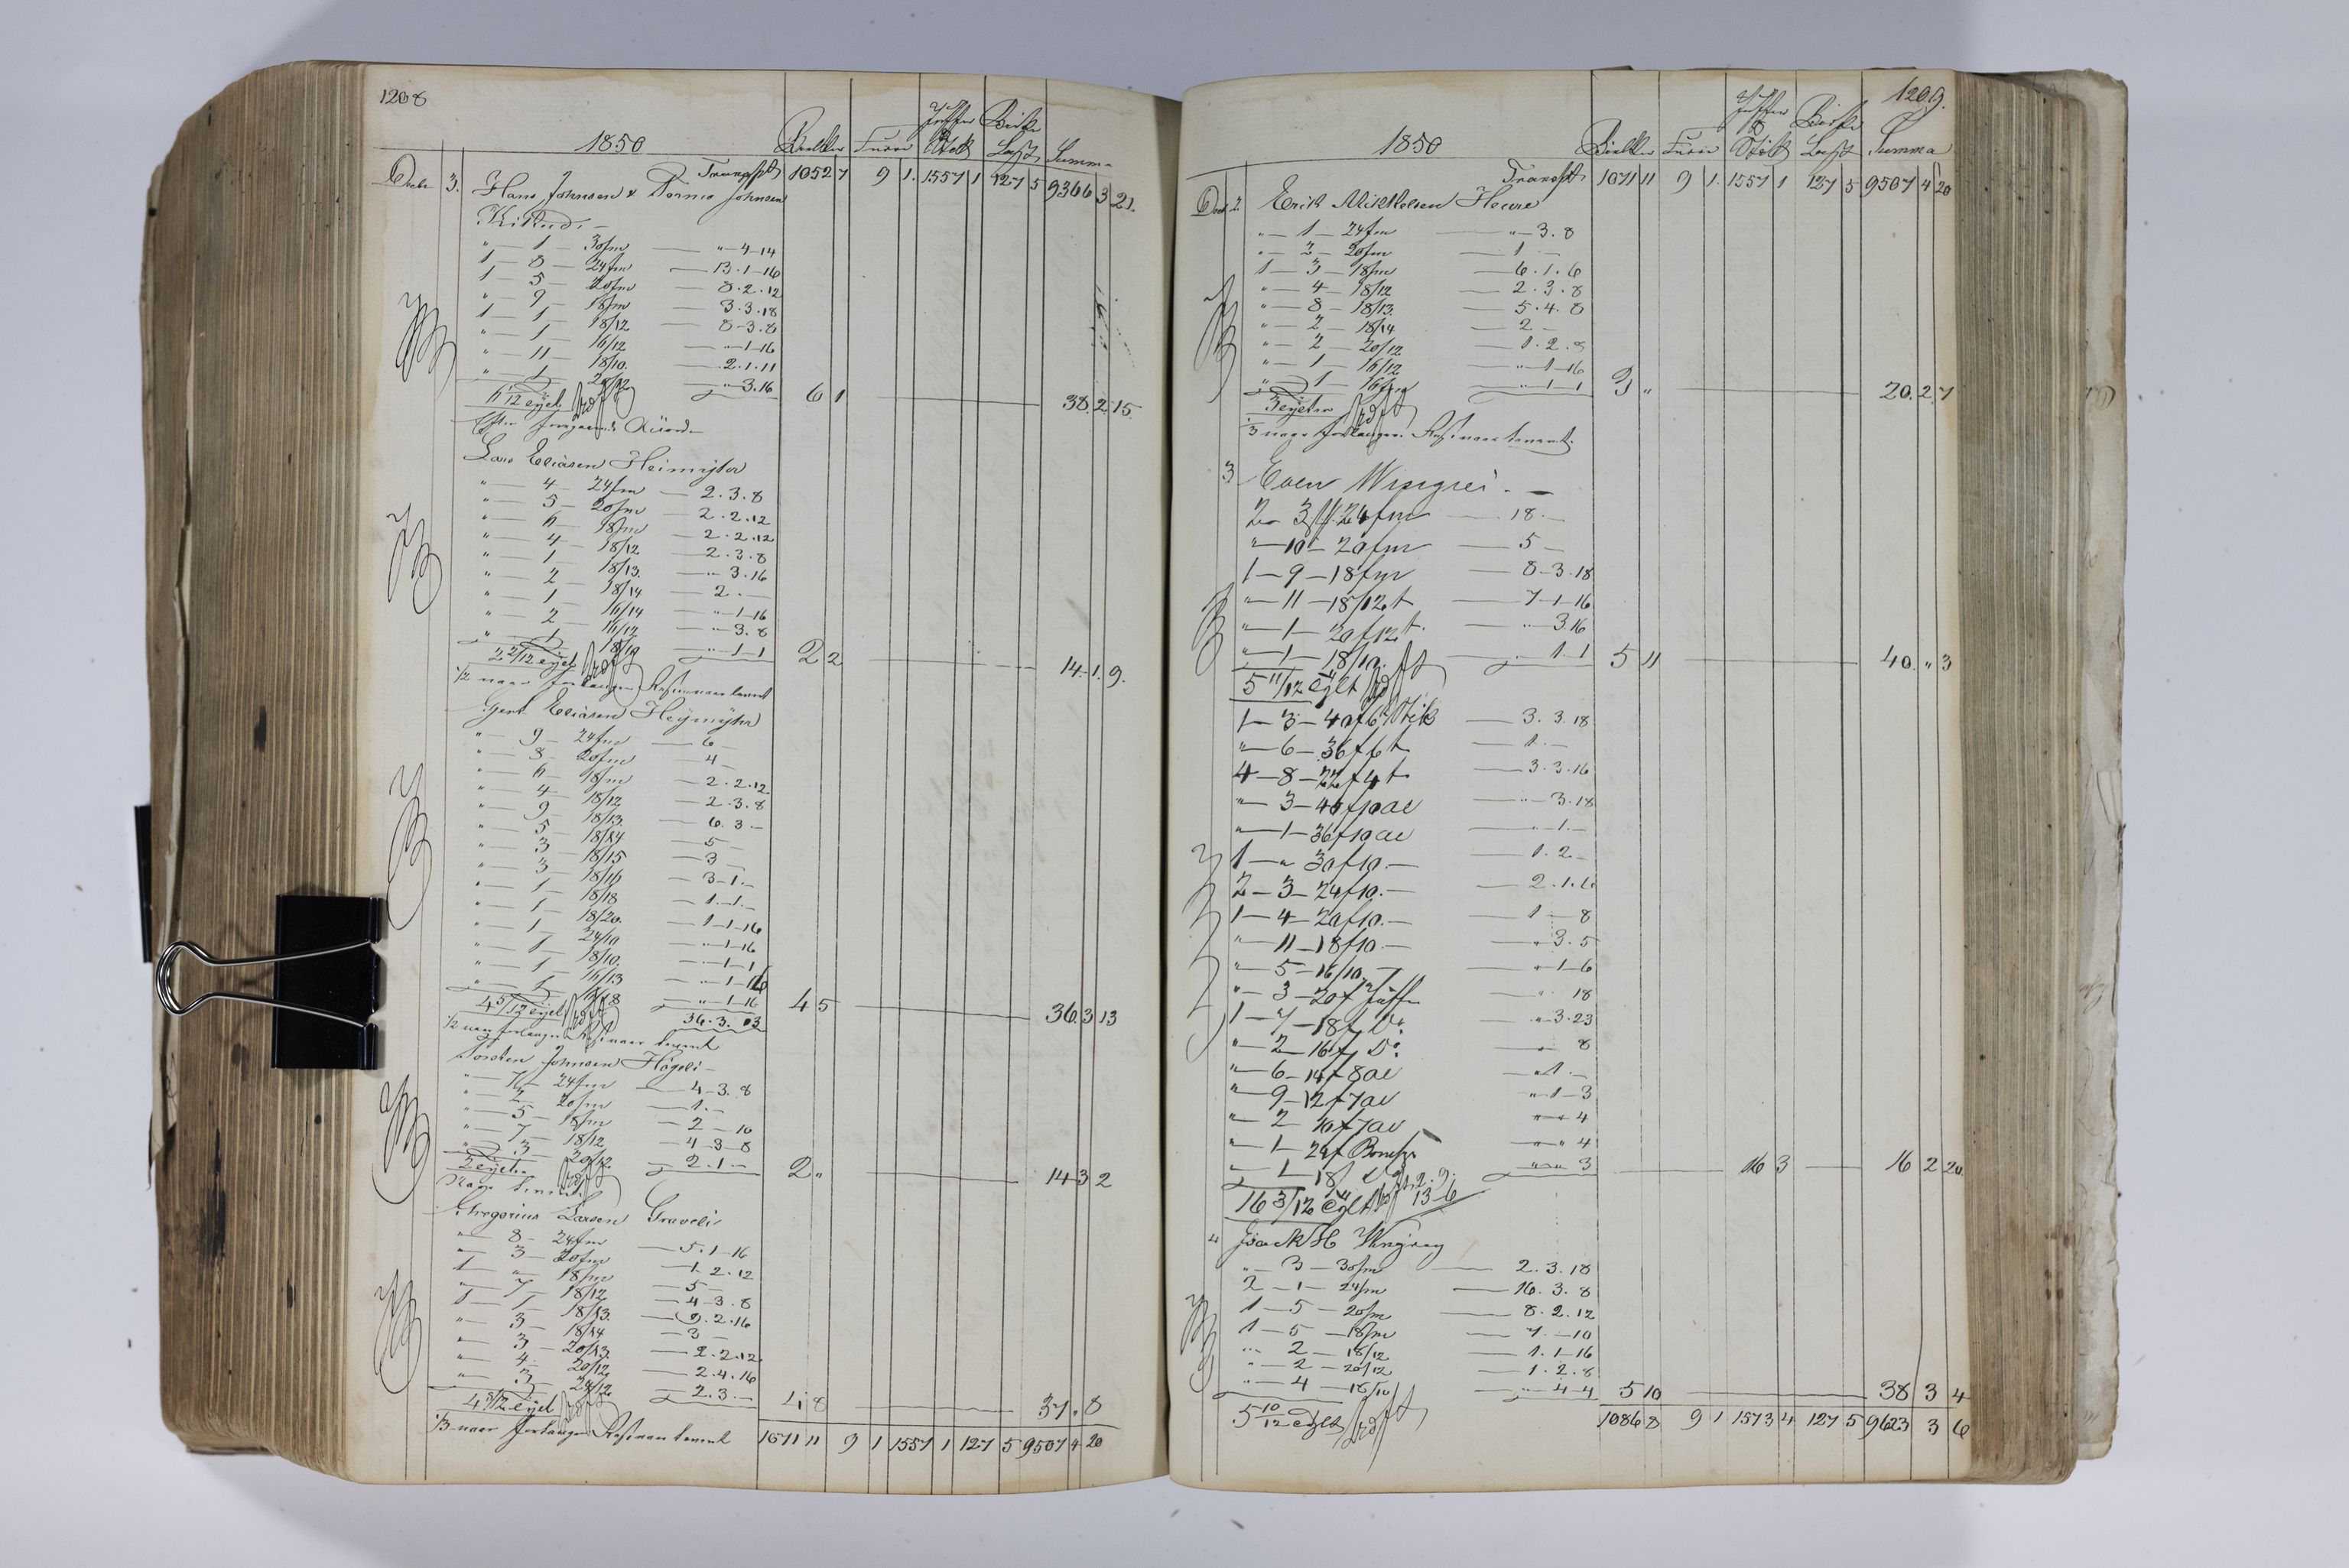 1208
1850 Bielker Furer Juffer & Stok Birke Last Summa
Decbr 3. Transpt 1052 7 9 1. 1557 1 127 5 9366 3 21.
Hans Johnsen & Johnsen
" — 1 — 30fm — " — 4 — 14
1 — 8 — 24fm — 13 . 1 — 16
1 — 5 — 20fm — 8 . 2 . 12
" — 9 — 18fm — 3 . 3 . 18
1 — 1 — 18/12 — 8 — 3 . 8
" — 1 — 16/12 — " — 1 — 16
" — 11 — 18/10. — 2 . 1 . 11
" — 1 — 20/12 — " — 3 . 16
6 1/12 eylt 6 1 — 38. 2 15.
Lars Eliasen Heimyhr
" — 4 — 24fm — 2 . 3 . 8
" — 5 — 20fm — 2 . 2 . 12
" — 6 — 18fm — 2 . 2 . 12
" — 4 — 18/12 — 2 . 3 . 8
" — 1 — 18/13. — " 3 . 16
" — 2 — 18/14 — 2 . —
" — 1 — 16/14 — " — 1 — 16
" — 2 — 16/12 — " 3 . 8
" — 1 — 18/10 — " — 1 — 1
2 2/12 eylt 2 2 — 14 1. 9.
1/2 naar forlanger Rest naar kommt
Gert Eliasen Heÿmÿhr
" — 9 — 24fm — 6 —
" — 8 — 20fm — 4 —
" — 6 — 18fm — 2 . 2 . 12
" — 4 — 18/12 — 2 . 3 . 8
" — 9 — 18/13. — 6. 3 . —
" — 5 — 18/14 — 5 —
" — 3 — 18/15 — 3 —
" — 3 — 18/16 — 3 — 1 . —
" — 1 — 18/18 — 1 . 1 . —
" — 1 — 18/20. — 1 — 1 — 16
" — 1 — 24/10 — " — 1 — 16
" — 1 — 18/10. — " — 1 — 1
" — 1 — 16/13 — " — 1 — 16
" — 1 — 16/18 — " — 1 — 16
4 5/12 eylt 36. 3. 13 4 5 — 36. 3 13
1/2 naar forlanger Rest naar kommt
Torsten Johnsen Högeli —
" — 7 — 24fm — 4 — 3 . 8
" — 2 — 20fm — 1 . —
" — 5 — 18fm — 2 — 10
" — 7 — 18/12 — 4 3 — 8
" — 3 — 20/12 — 2 . 1 —
2 eylt 2 " — 14 3 2
Gregorius Larsen Graveli
" — 8 — 24fm — 5 . 1 — 16
" — 3 — 20fm — 1 . 2 . 12
1 — " — 18fm — 5 —
" — 7 — 18/12 — 4 — 3 . 8
1 — 1 — 18/13. — 9 . 2 . 16
" — 3 — 18/14 — 3 —
" — 3 — 20/13. — 2 . 2 . 12
" — 4 — 20/12 — 2 . 4 . 16
" — 3 — 24/12 — 2 . 3 . —
4 8/12 eylt 4 8 — 37. " 8
1/3 naar forlanger Rest naar kommt 1071 11 9 1 1557 1 127 5 9507 4 20
1209.
1850 Bielker Furer Juffer & Stok Birke Last Summa
Transpt 1071 11 9 1. 1557 1 127 5 9507 4 20
Dec 2. Erik Mikkelsen
" — 1 — 24fm — " — 3 . 8
" — 2 — 20fm — 1 —
1 — 3 — 18fm — 6 . 1 . 6
" — 4 — 18/12 — 2 . 3 . 8
" — 8 — 18/13. — 5 . 4 . 8
" — 2 — 18/14 — 2 —
" — 2 — 20/12 — 1 . 2 . 8
" — 1 — 16/12 — " — 1 — 16
" — 1 — 16fm — " — 1 — 1
3 eylter 3 " — 20. 2. 7
1/3 naar forlanger Rest naar kommt.
3 Even Wingrei . —
2 — 3 — 24fm — 18 . —
" — 10 — 20fm — 5 —
1 — 9 — 18fm — 8 — 3 . 18
" — 11 — 18/12t — 7 — 1 — 16
" — 1 — 20f12t. — " 3 . 16
" — 1 — 18/10. — " 1 . 1 5 11 — 40. " 3
5 11/12 Eylt
1 — 3 — 40f6t Stik — 3 . 3 . 18
" — 6 — 36f6t — 1 . —
4 — 8 — 22f4t. — 3 . 3 . 16
" — 3 — 40f10al — " — 3 . 18
" — 1 — 36f10al — " 1 . —
1 — " 30f10. — — 1 . 2 —
2 — 3 — 24f10. — — 2 . 1 . 6
1 — 4 — 20f10. — — 1 — 8
" — 11 — 18f10 — — " 3 . 5
" — 5 — 16/10 — — " 1 — 6
" — 3 — 20f Juffer — " 18
1 — 7 — 18f Do — " — 3 . 23
" — 2 — 16f Do — " 8
" — 6 — 14f8al — " 1 . —
" — 9 — 12f7al — " 1 — 3
" — 2 — 10f7al — " " 4
" — 1 — 24f — " " 4
" — 1 — 18f — " " 3 — 16 3 — 16 2 20
16 3/12 Eylt 13 — 6
" Isack H
" — 3 — 30fm — 2 . 3 . 18
2 — 1 — 24fm — 16 . 3 . 8
1 — 5 — 20fm — 8 . 2 . 12
1 — 5 — 18fm — 7 . — 10
" — 2 — 18/12 — 1 . 1 — 16
" — 2 — 20/12 — 1 . 2 . 8
" — 4 — 18/10 — " — 4 — 4 5 10 — 38 3 4
5 10/12 Eylt 1086 8 9 1 1573 4 127 5 9623 3 6